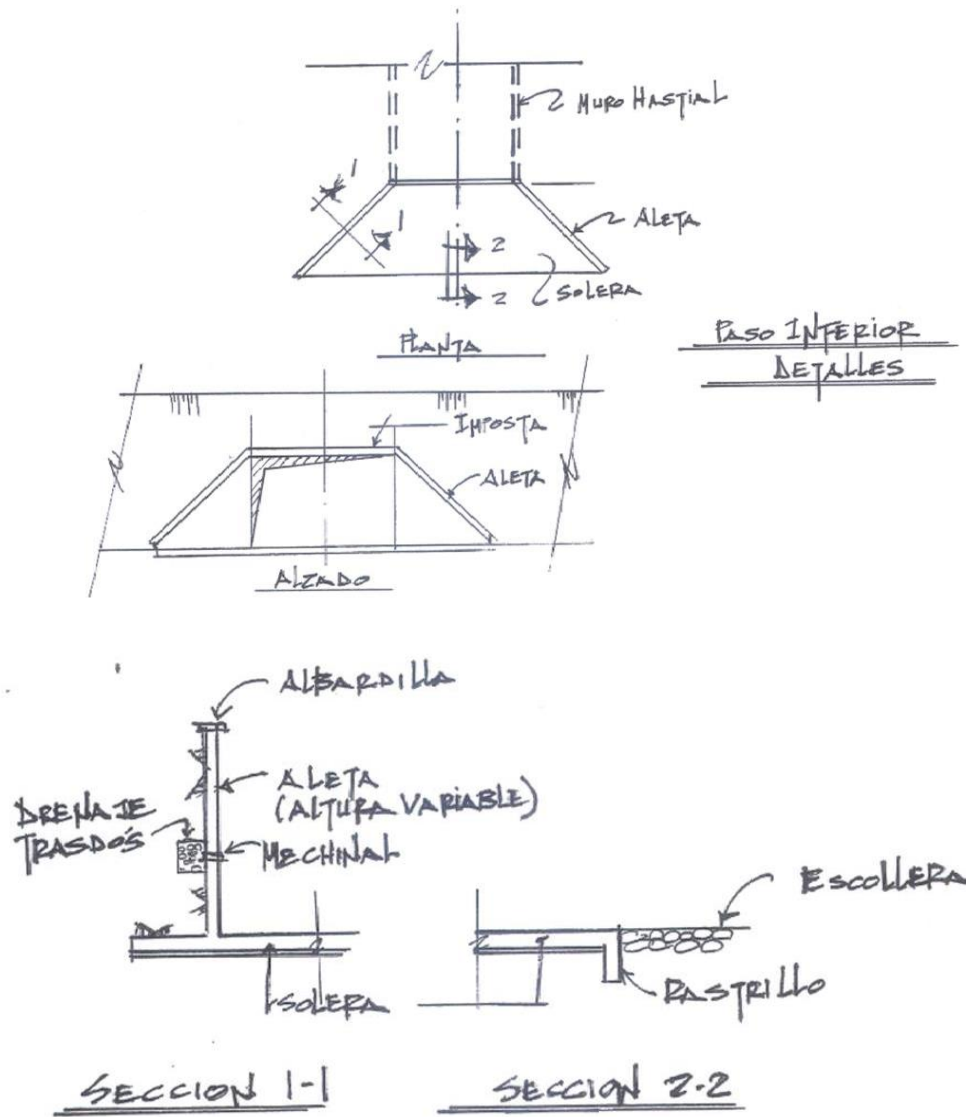 MURO HASTIAL
1
ALETA
1
2
SOLERA
2
PLANTA
PASO INFERIOR
DETALLES
IMPOSTA
ALETA
ALZADO
ALBARDILLA
ALETA
(ALTURA VARIABLE)
DRENAJE
TRASDÓS
MECHINAL
SOLERA
ESCOLLERA
RASTRILLO
SECCION 1-1
SECCION 2-2